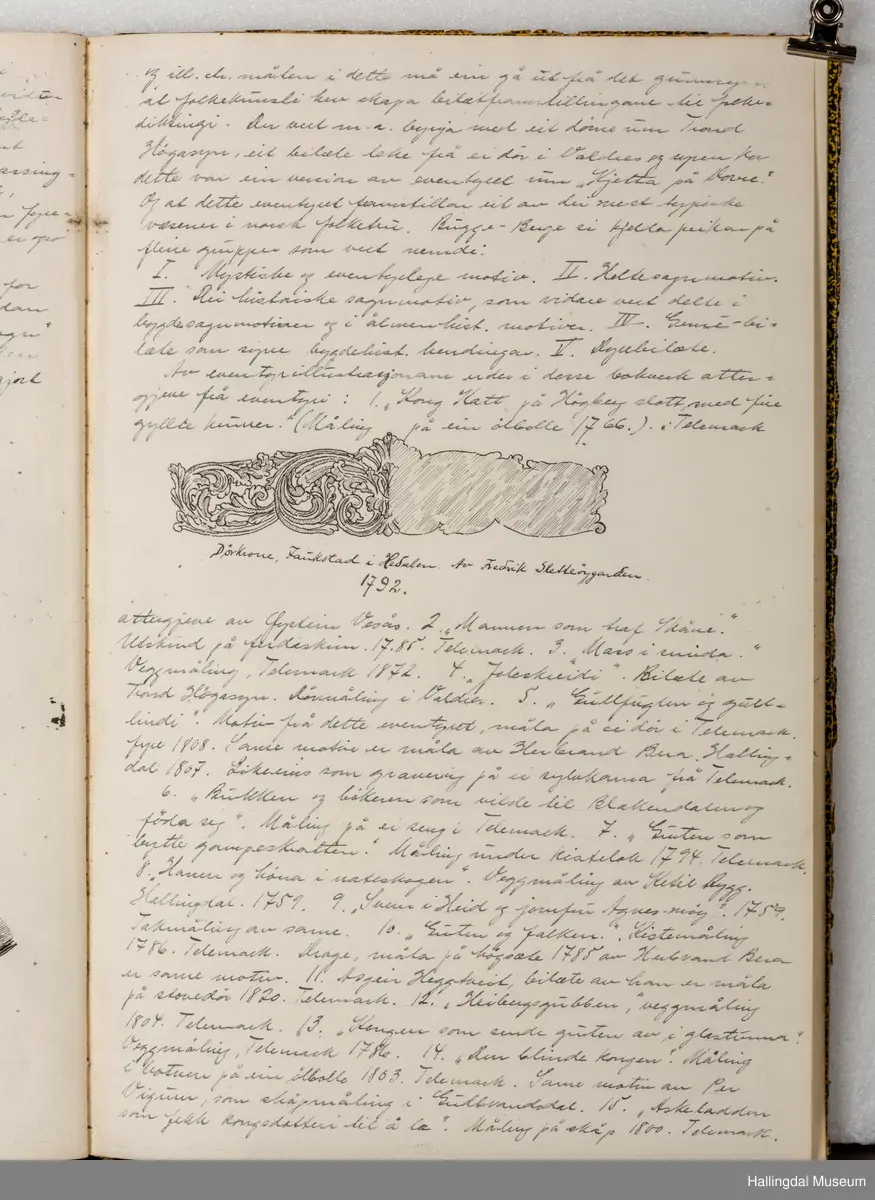 og ill. el. målen i dette må ein gå ut frå det
at folkekunsti hev skapa bilætframstillingane til folke-
diktingi. Den vert m. a. byrja med eit døme um Trond
Högasyn, eit bilæte teke frå ei dör i Valdres og syner kor
dette var ein version av eventyret um "Kjetta på Dovre."
Og at dette eventyret framstillar eit av dei mest typiske
væsener i norsk folketru. Bugge-Berge si kjelda peikar på
fleire grupper som vert nemde:
I. Mystiske og eventyrlege motiv. II. Heltesagnmotiv.
III. Dei historiske sagnmotiv, som vidare vert delte i
bygdesagnmotiver og i ålmenhist. motiver. IV. Genre-bi-
læte som syner bygdehist. hendingar. V. Dyrebilæte.
Av eventyrillustrasjonane er der i desse bokverk atter-
gjeve frå eventyri: 1. "Kong Katt på Högberg slott, med fire
gyllte runer." (Måling på ein ölbolle 1766.). i Telemark
Dörkrone, Faukstad i Hedalen. Av Fredrik Sletteöygarden.
1792.
attergjeve av Öystein Vesås. 2. "Mannen som traf Skåne."
Utskurd på ferdaskrin. 1785. Telemark. 3. Mass i smida."
Veggmåling, Telemark 1872. 4. "Joleskreidi". Bilæte av
Trond Högasyn. Dörmåling i Valdres. 5. "Gullfuglen og gull-
lindi". Motiv frå dette eventyret, måla på ei dör i Telemark.
fyre 1808. Same motiv er måla av Herbrand Bera, Halling-
dal 1807. Likeeins som gravering på ei sylvkanna frå Telemark.
6. "Bukken og bikeren som vilde til Blakendalen og
föda seg". Måling på ei seng i Telemark. 7. "Guten som
bytte gampeskatten." Måling under kistelok 1794. Telemark.
8. "Hanen og höna i nateskogen". Veggmåling av Ketil Rygg.
Hallingdal. 1759. 9. "Svein i Heid og jomfru Agnes-möy". 1759.
Takmåling av same. 10. "Guten og falken." Kistemåling
1786. Telemark. Drage, måla på högsæte 1785 av Herbrand Bera
er same motiv. 11. Asgeir Heggtveit, bilæte av han er måla
på stovedör 1820. Telemark. 12. "Heibergsgubben," veggmåling
1804. Telemark. 13. "Kongen som sende guten av i glastunna".
Veggmåling, Telemark 1786. 14. "Den blinde kongen". Måling
i botnen på ein ölbolle 1803. Telemark. Same motiv av Per
Vigum, som skåpmåling i Gudbrandsdal. 15. "Askeladden
som fekk kongsdotteri til å læ". Måling på skåp 1800. Telemark.
Hallingdal Museum